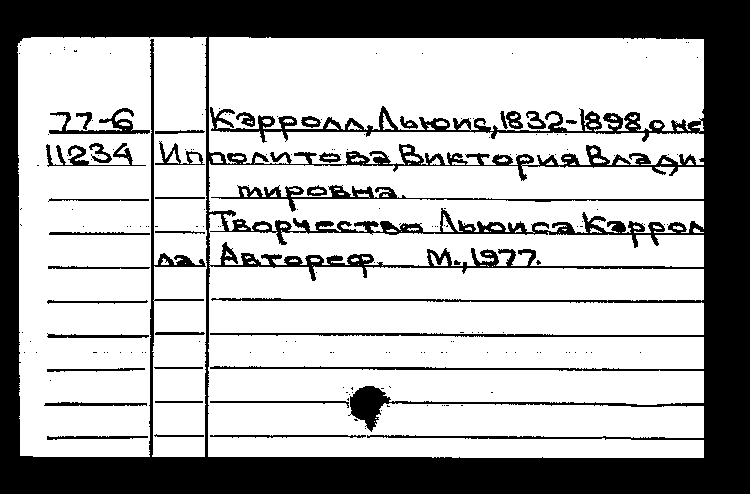 77-6 Кэрролл, Льюис, 1832-1898, о не
11234 Ипполитова, Виктория Влади-
мировна.
Творчество Льюиса Кэррол
ла. Автореф. М., 1977.